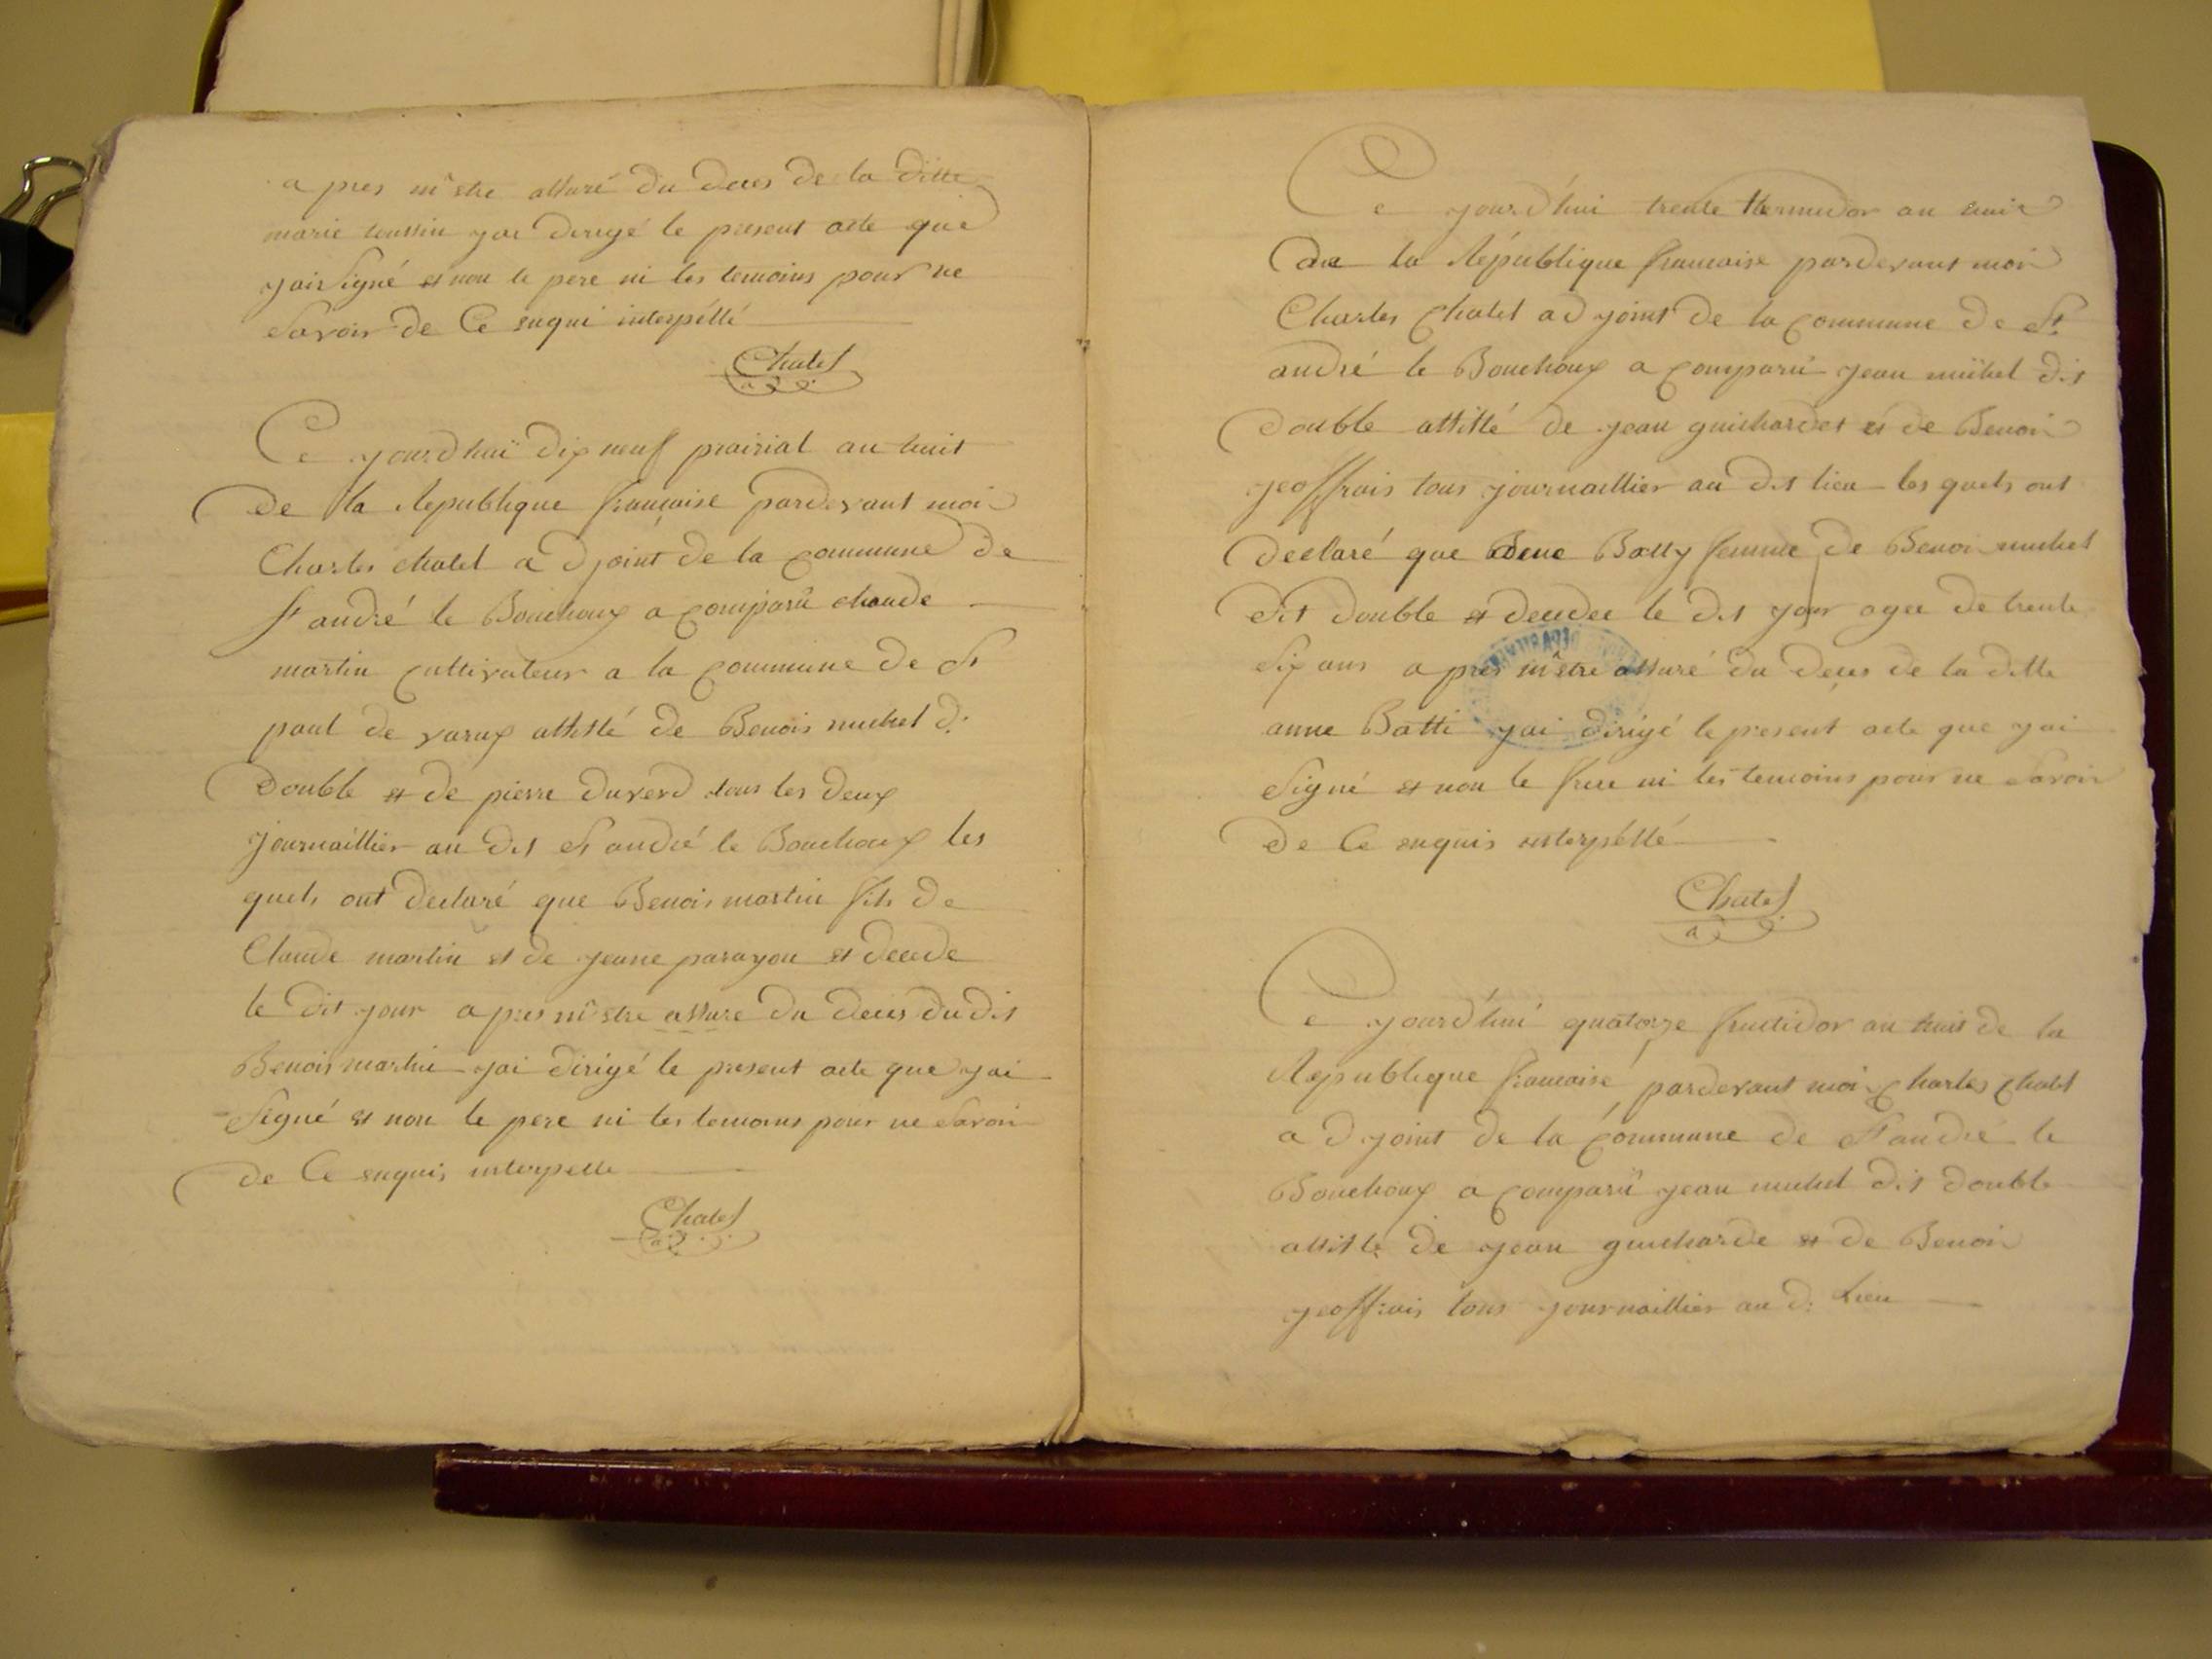 a pres m'etre assuré du deces de la ditte
marie toussin jai derigé le present acte que
jai signé et non le pere ni les temoins pour ne
savoir de Ce enqui interpéllé
Chatel
a
Ce jourd'hui dix neuf prairial an huit
de la Republique francaise pardevant moi
Charles chatel adjoint de la commune de
St andré le Bouchoux a comparu claude
martin cultivateur a la commune de St
paul de varax assisté de Benois michel d:
double et de pierre duverd tous les deux
journaillier au dit St andré le Bouchoux les
quels ont declaré que Benois martin fils de
Claude martin et de jeane parayon et decede
le dit jour a pres m'etre assure du deces du dit
Benois martin jai dirigé le present acte que jai
signé et non le pere ni les temoins pour ne savoir
de Ce enquis interpelle
Chatel
a
Ce jourd'hui trente thermidor an huit
de la République francaise pardevant moi
Charles Chatel adjoint de la commune de St
andré le Bouchoux a comparu jean michel dit
double assisté de jean guichardet et de Benoi
geoffrais tous journaillier au dit lieu les quels ont
declaré que Batty femme de Benoi michel
dit double et decedee le dit jour agee de trente
six ans a pres m'etre assuré du deces de la ditte
anne Batti jai dirigé le present acte que jai
signé et non le frere ni les temoins pour ne savoir
de Ce enquis interpéllé
Chatel
a
Ce jourd'hui quatorze fructidor an huit de la
Republique francaise pardevant moi Charles Chatel
adjoint de la commune de St andré le
Bouchoux a comparu jean michel dit double
assisté de jean guicharde et de Benoi
geoffrais tous journaillier au d: lieu